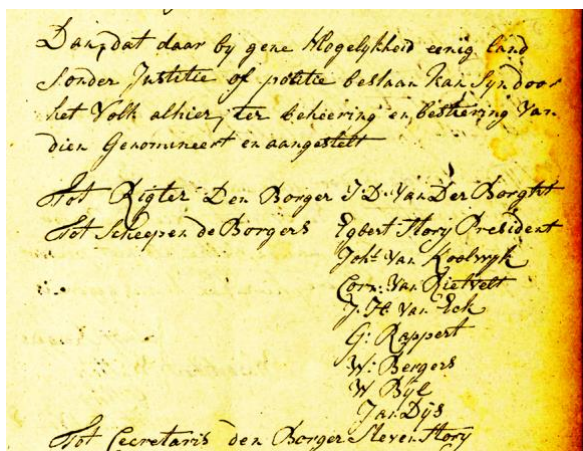 Dan, dat daar by gene Mogelykheid eenig land
sonder Justitie of politie bestaan kan syn door
het Volk alhier, ter beheering en bestiering Van
dien Genomineert en aangestelt
Tot Rigter Den Borger J: D: Van Der Borght
Tot Scheepen de Borgers Egbert Story President
Joh:s Van Koolwyk
Corn: Van Rietvelt
J: H: Van Eck
G: Rappert
W: Bergers
W Bÿl
Jan Dÿs
Tot Cecretaris den Borger Steven Story